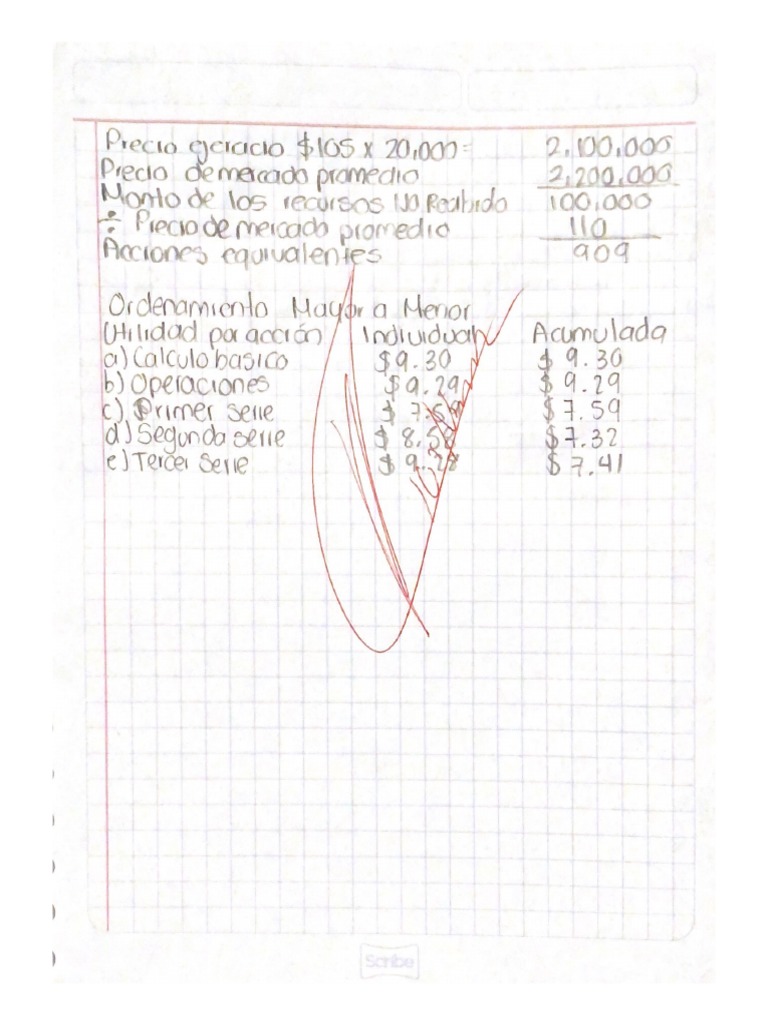 Precio ejercicio $105 x 20,000= 2,100,000
Precio de mercado promedio 2,200,000
Monto de los recursos No Recibido 100,000
÷ Precio de mercado promedio 110
Acciones equivalentes 909
Ordenamiento Mayor a Menor
Utilidad por acción Individual Acumulada
a) Calculo basico $9.30 $9.30
b) Operaciones $9.29 $9.29
c) Primer serie $7.59 $7.59
d) Segunda serie $8.58 $7.32
e) Tercer Serie $9.28 $7.41
Scribe